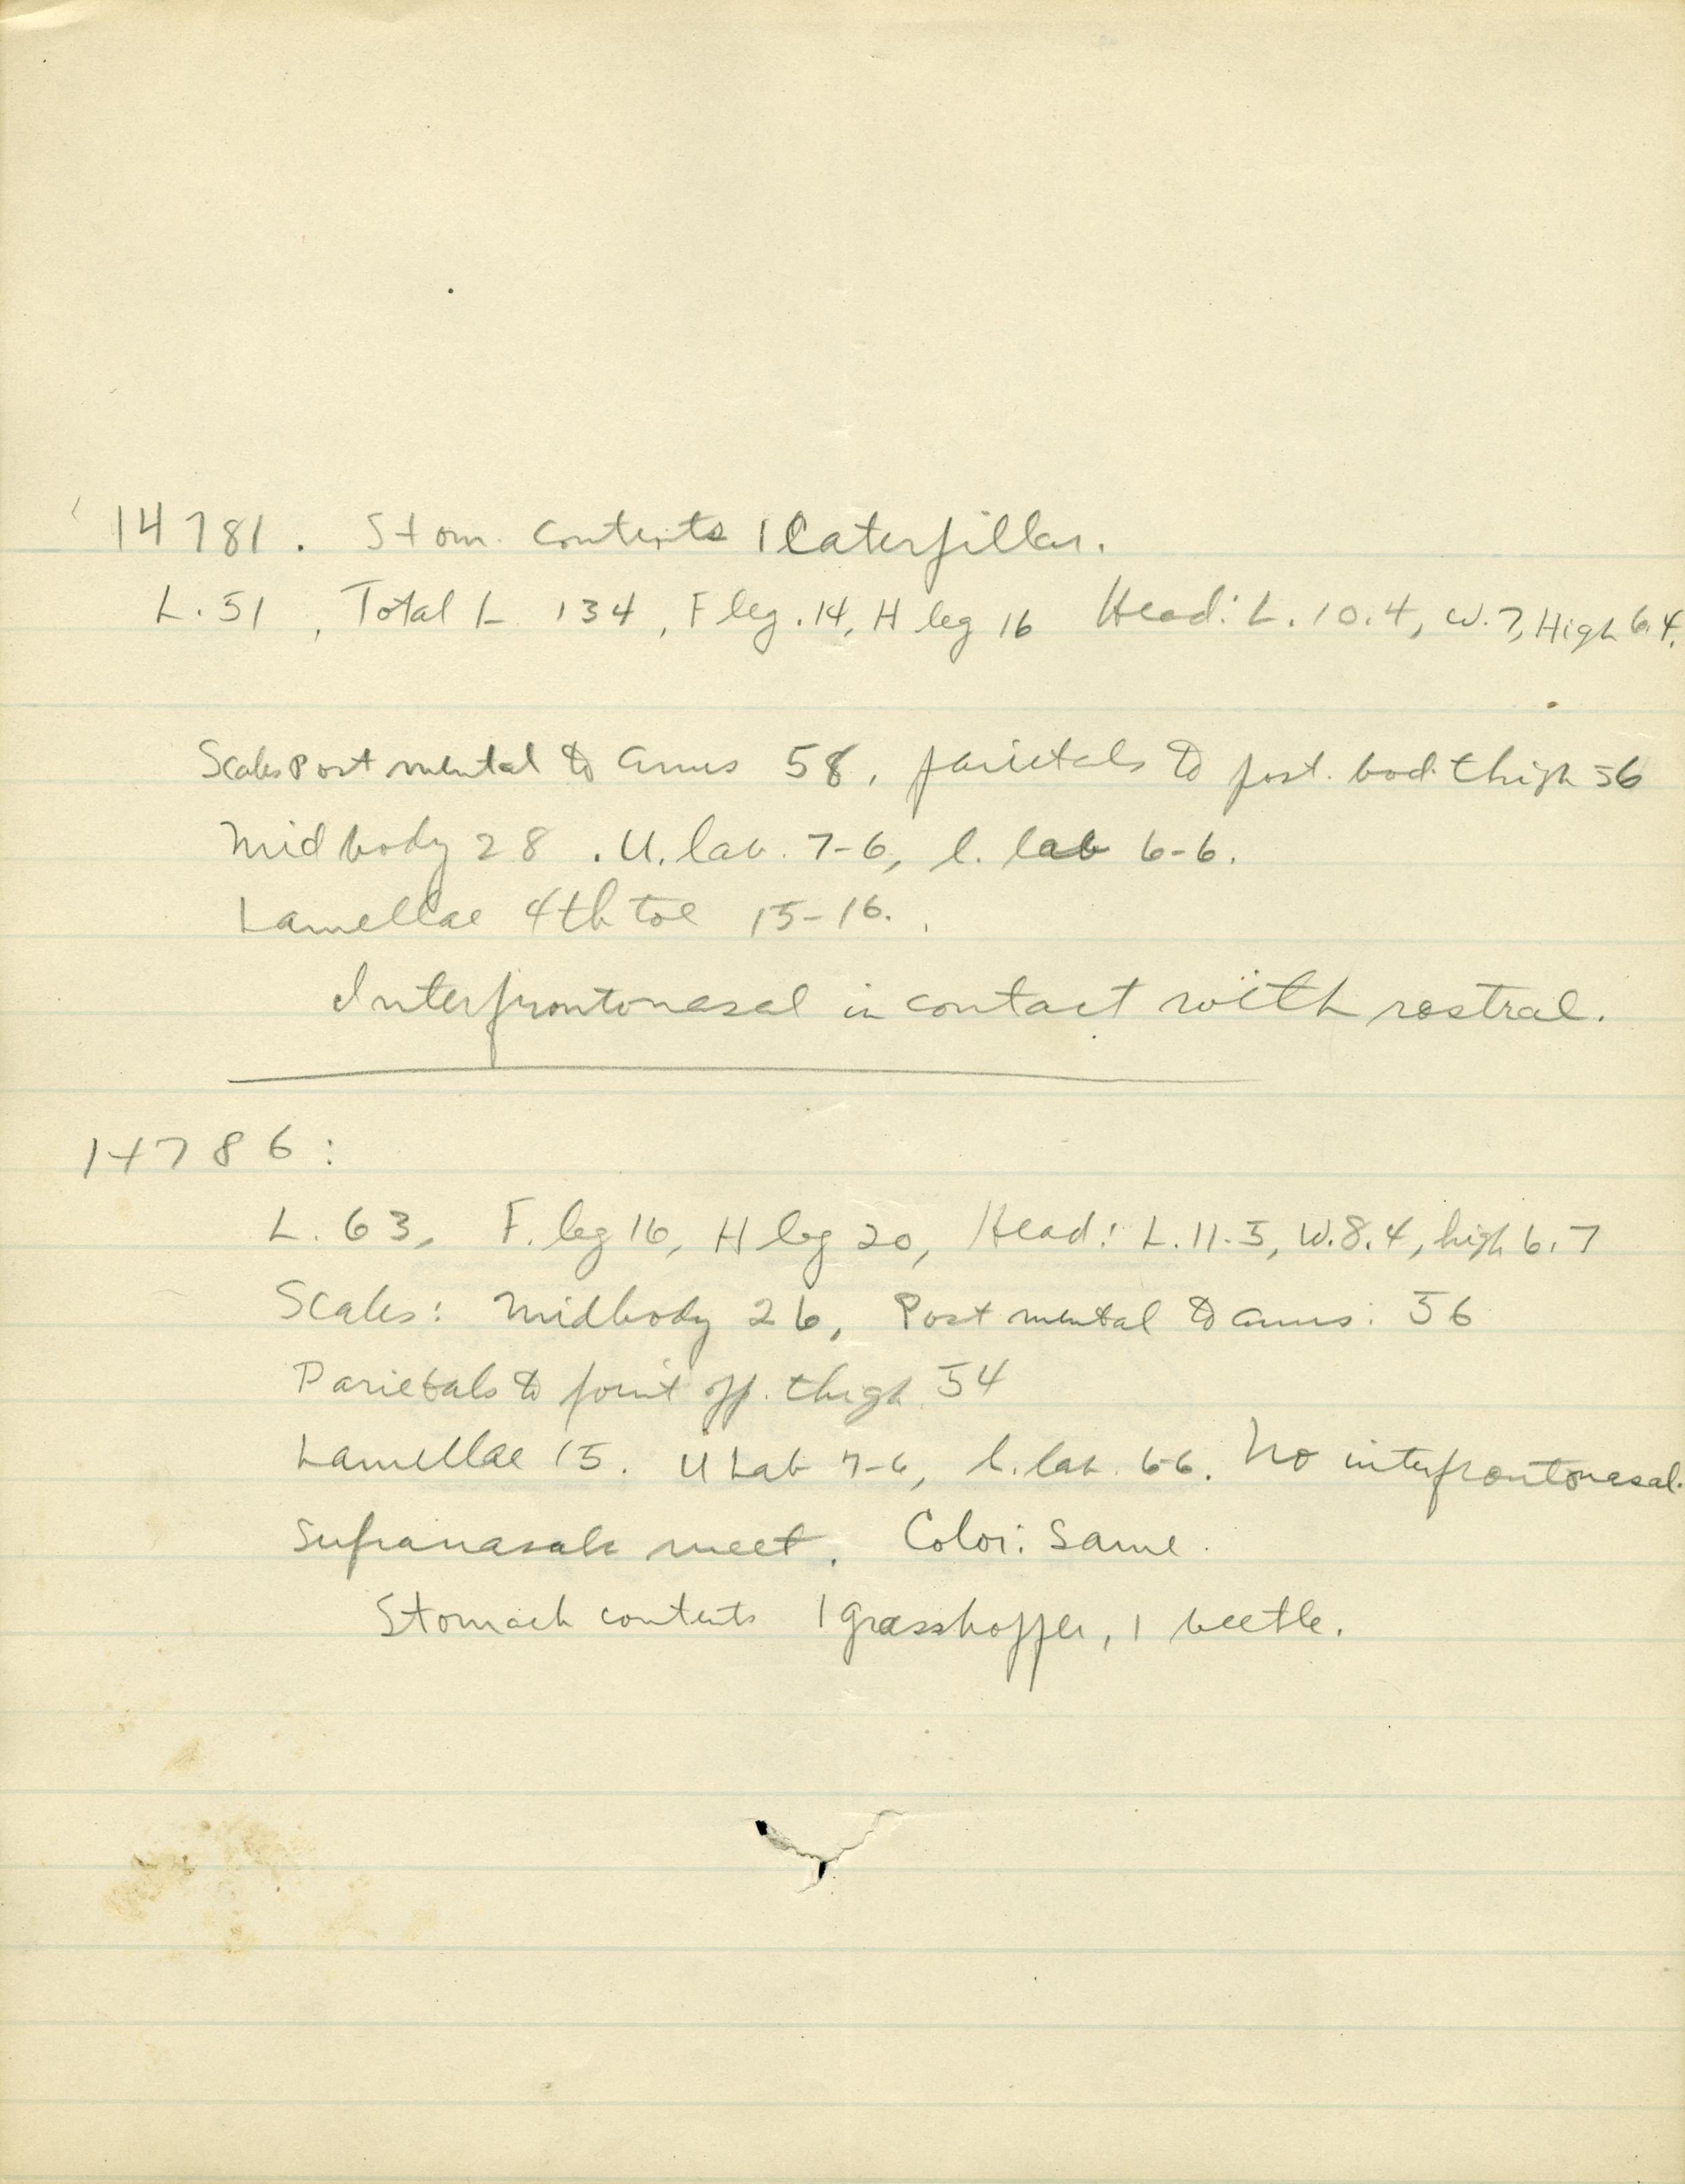 14781. Stom. contents 1 Caterpillar.
L. 51, Total L 134, F leg. 14, H leg 16 Head: L. 10.4, W. 7, High 6.4.
Scales Post mental to anus 58, parietals to post. bod. thigh 56
Mid body 28. U. lab. 7-6, l. lab 6-6.
Lamellae 4th toe 15-16.
Interfrontonasal in contact with rostral.
14786:
L. 63, F. leg 16, H leg 20, Head: L. 11.5, W. 8.4, high 6.7
Scales: Midbody 26, Post mental to anus: 56
Parietals to point opp. thigh 54
Lamellae 15. U Lab 7-6, l. lab. 6-6. No interfrontonasal.
Supranasals meet. Color: Same.
Stomach contents 1 grasshopper, 1 beetle.